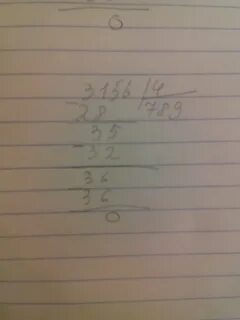 0
3156 4
-28 789
35
-32
36
-36
0